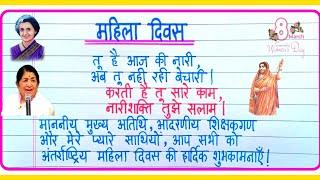 महिला दिवस
8
March
Women's Day
तू है आज की नारी,
अब तू नहीं रही बेचारी।
करती है तू सारे काम,
नारीशक्ति तुझे सलाम।
माननीय मुख्य अतिथि, आदरणीय शिक्षकगण
और मेरे प्यारे साथियों, आप सभी को
अंतर्राष्ट्रीय महिला दिवस की हार्दिक शुभकामनाएँ!